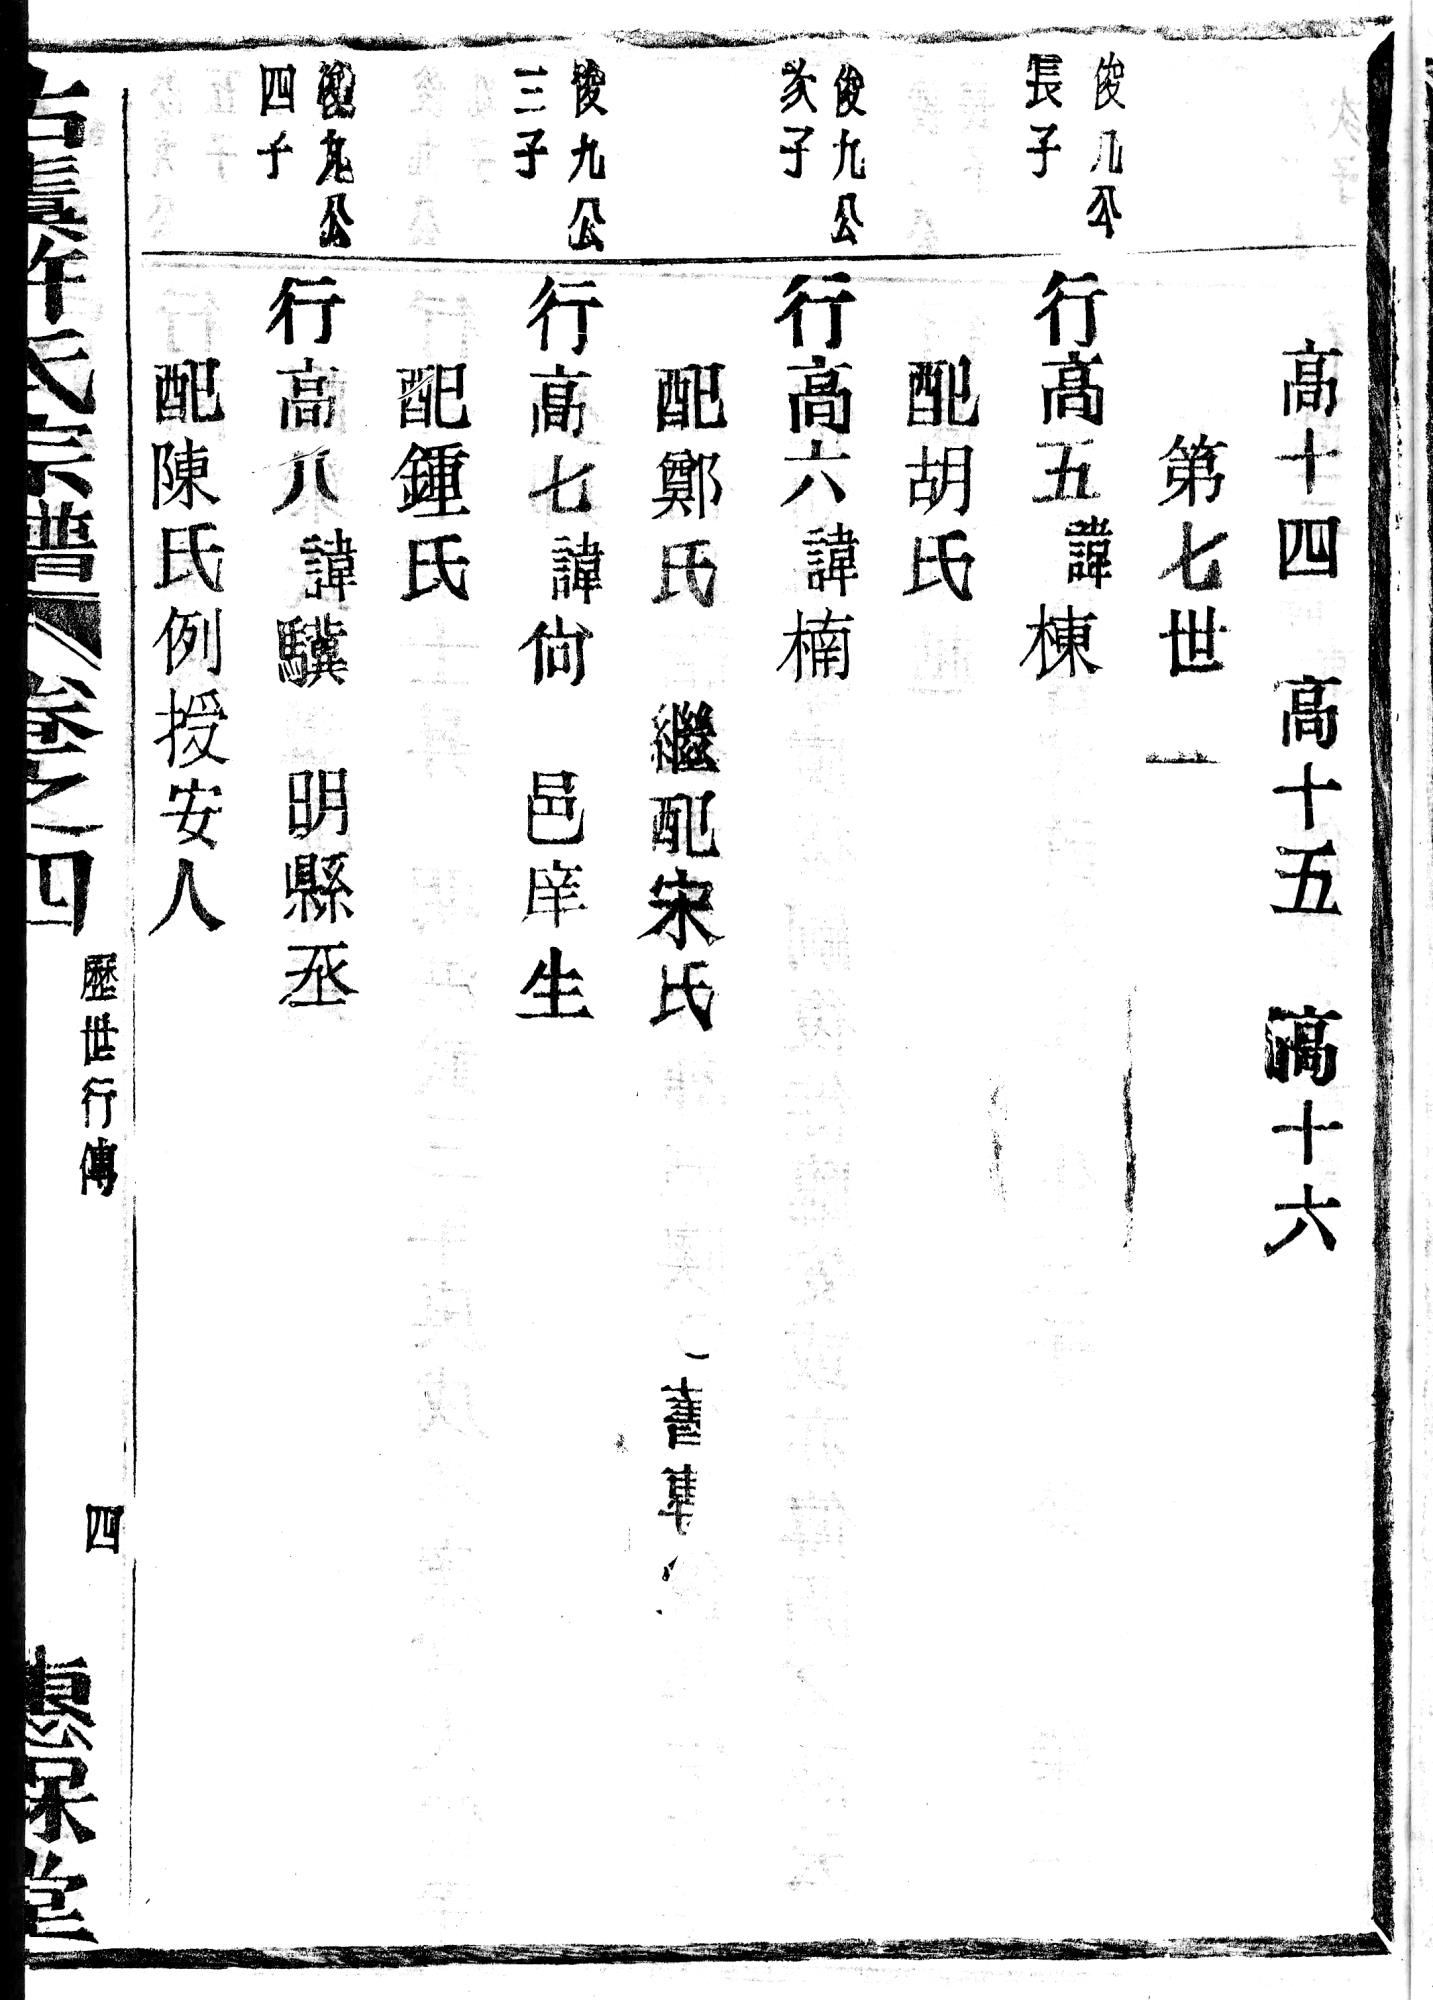 高十四 高十五 高十六
第七世
俊九公
長子
行高五諱棟
配胡氏
俊九公
次子
行高六諱楠
配鄭氏 繼配宋氏
俊九公
三子
行高七諱尙 邑庠生
配鍾氏
俊九公
四子
行高八諱驥 明縣丞
配陳氏例授安人
古虞許氏宗譜 卷之四
歷世行傳
四
惠保堂